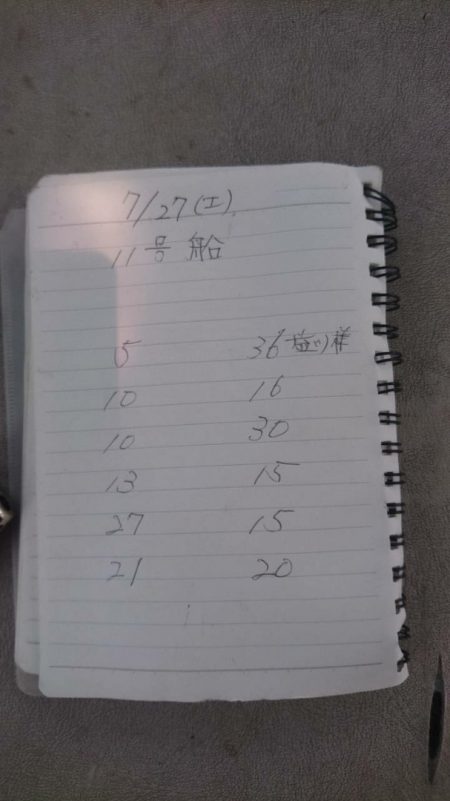 7/27(土)
11号船
5 36 様
10 16
10 30
13 15
27 15
21 20